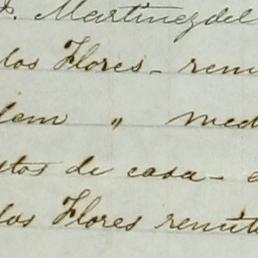 P. Martinez del
los Flores - remi
dem " med
tos de casa - e
los Flores remite